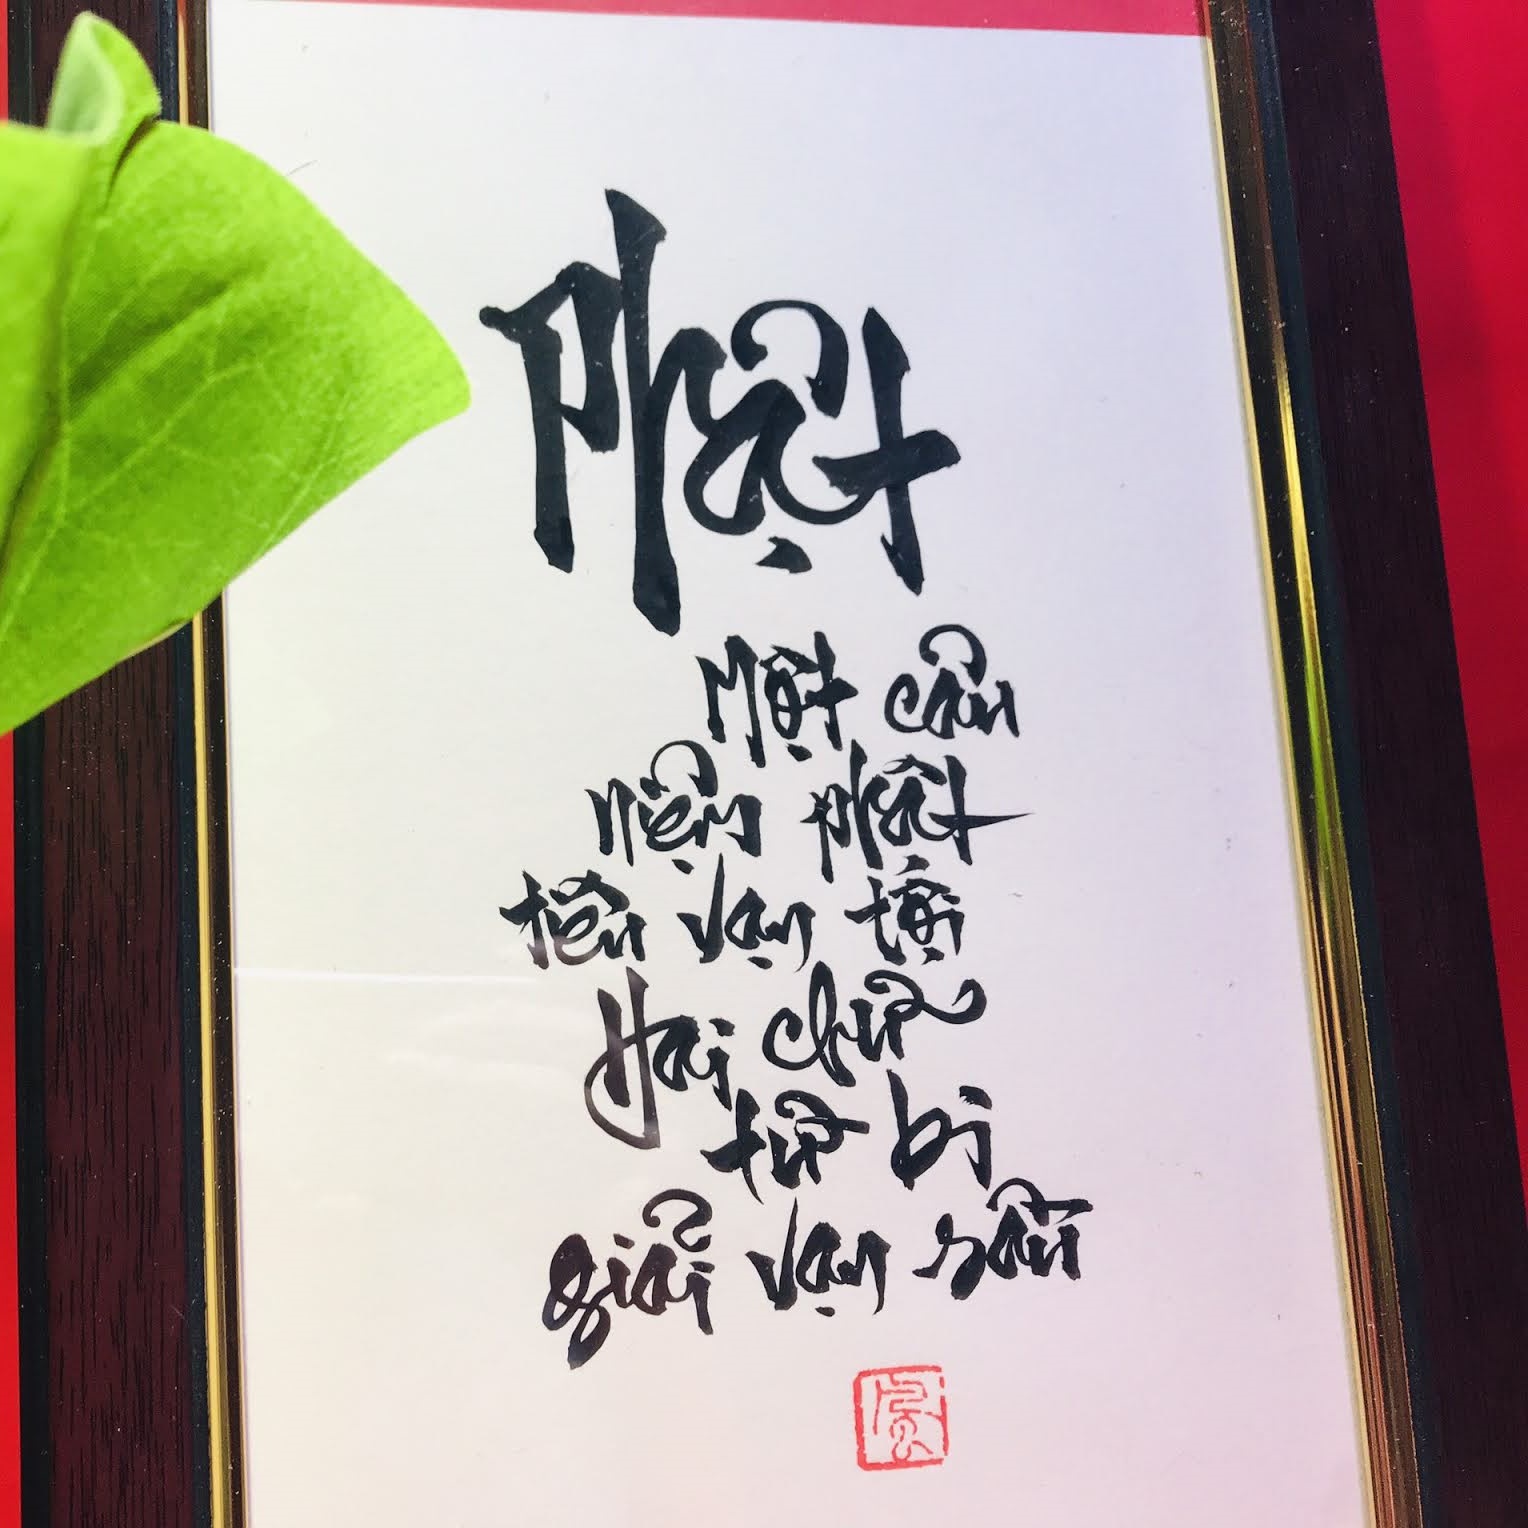 Phật
Một câu
niệm phật
tiêu vạn tội
Hai chữ
từ bi
giải vạn sầu